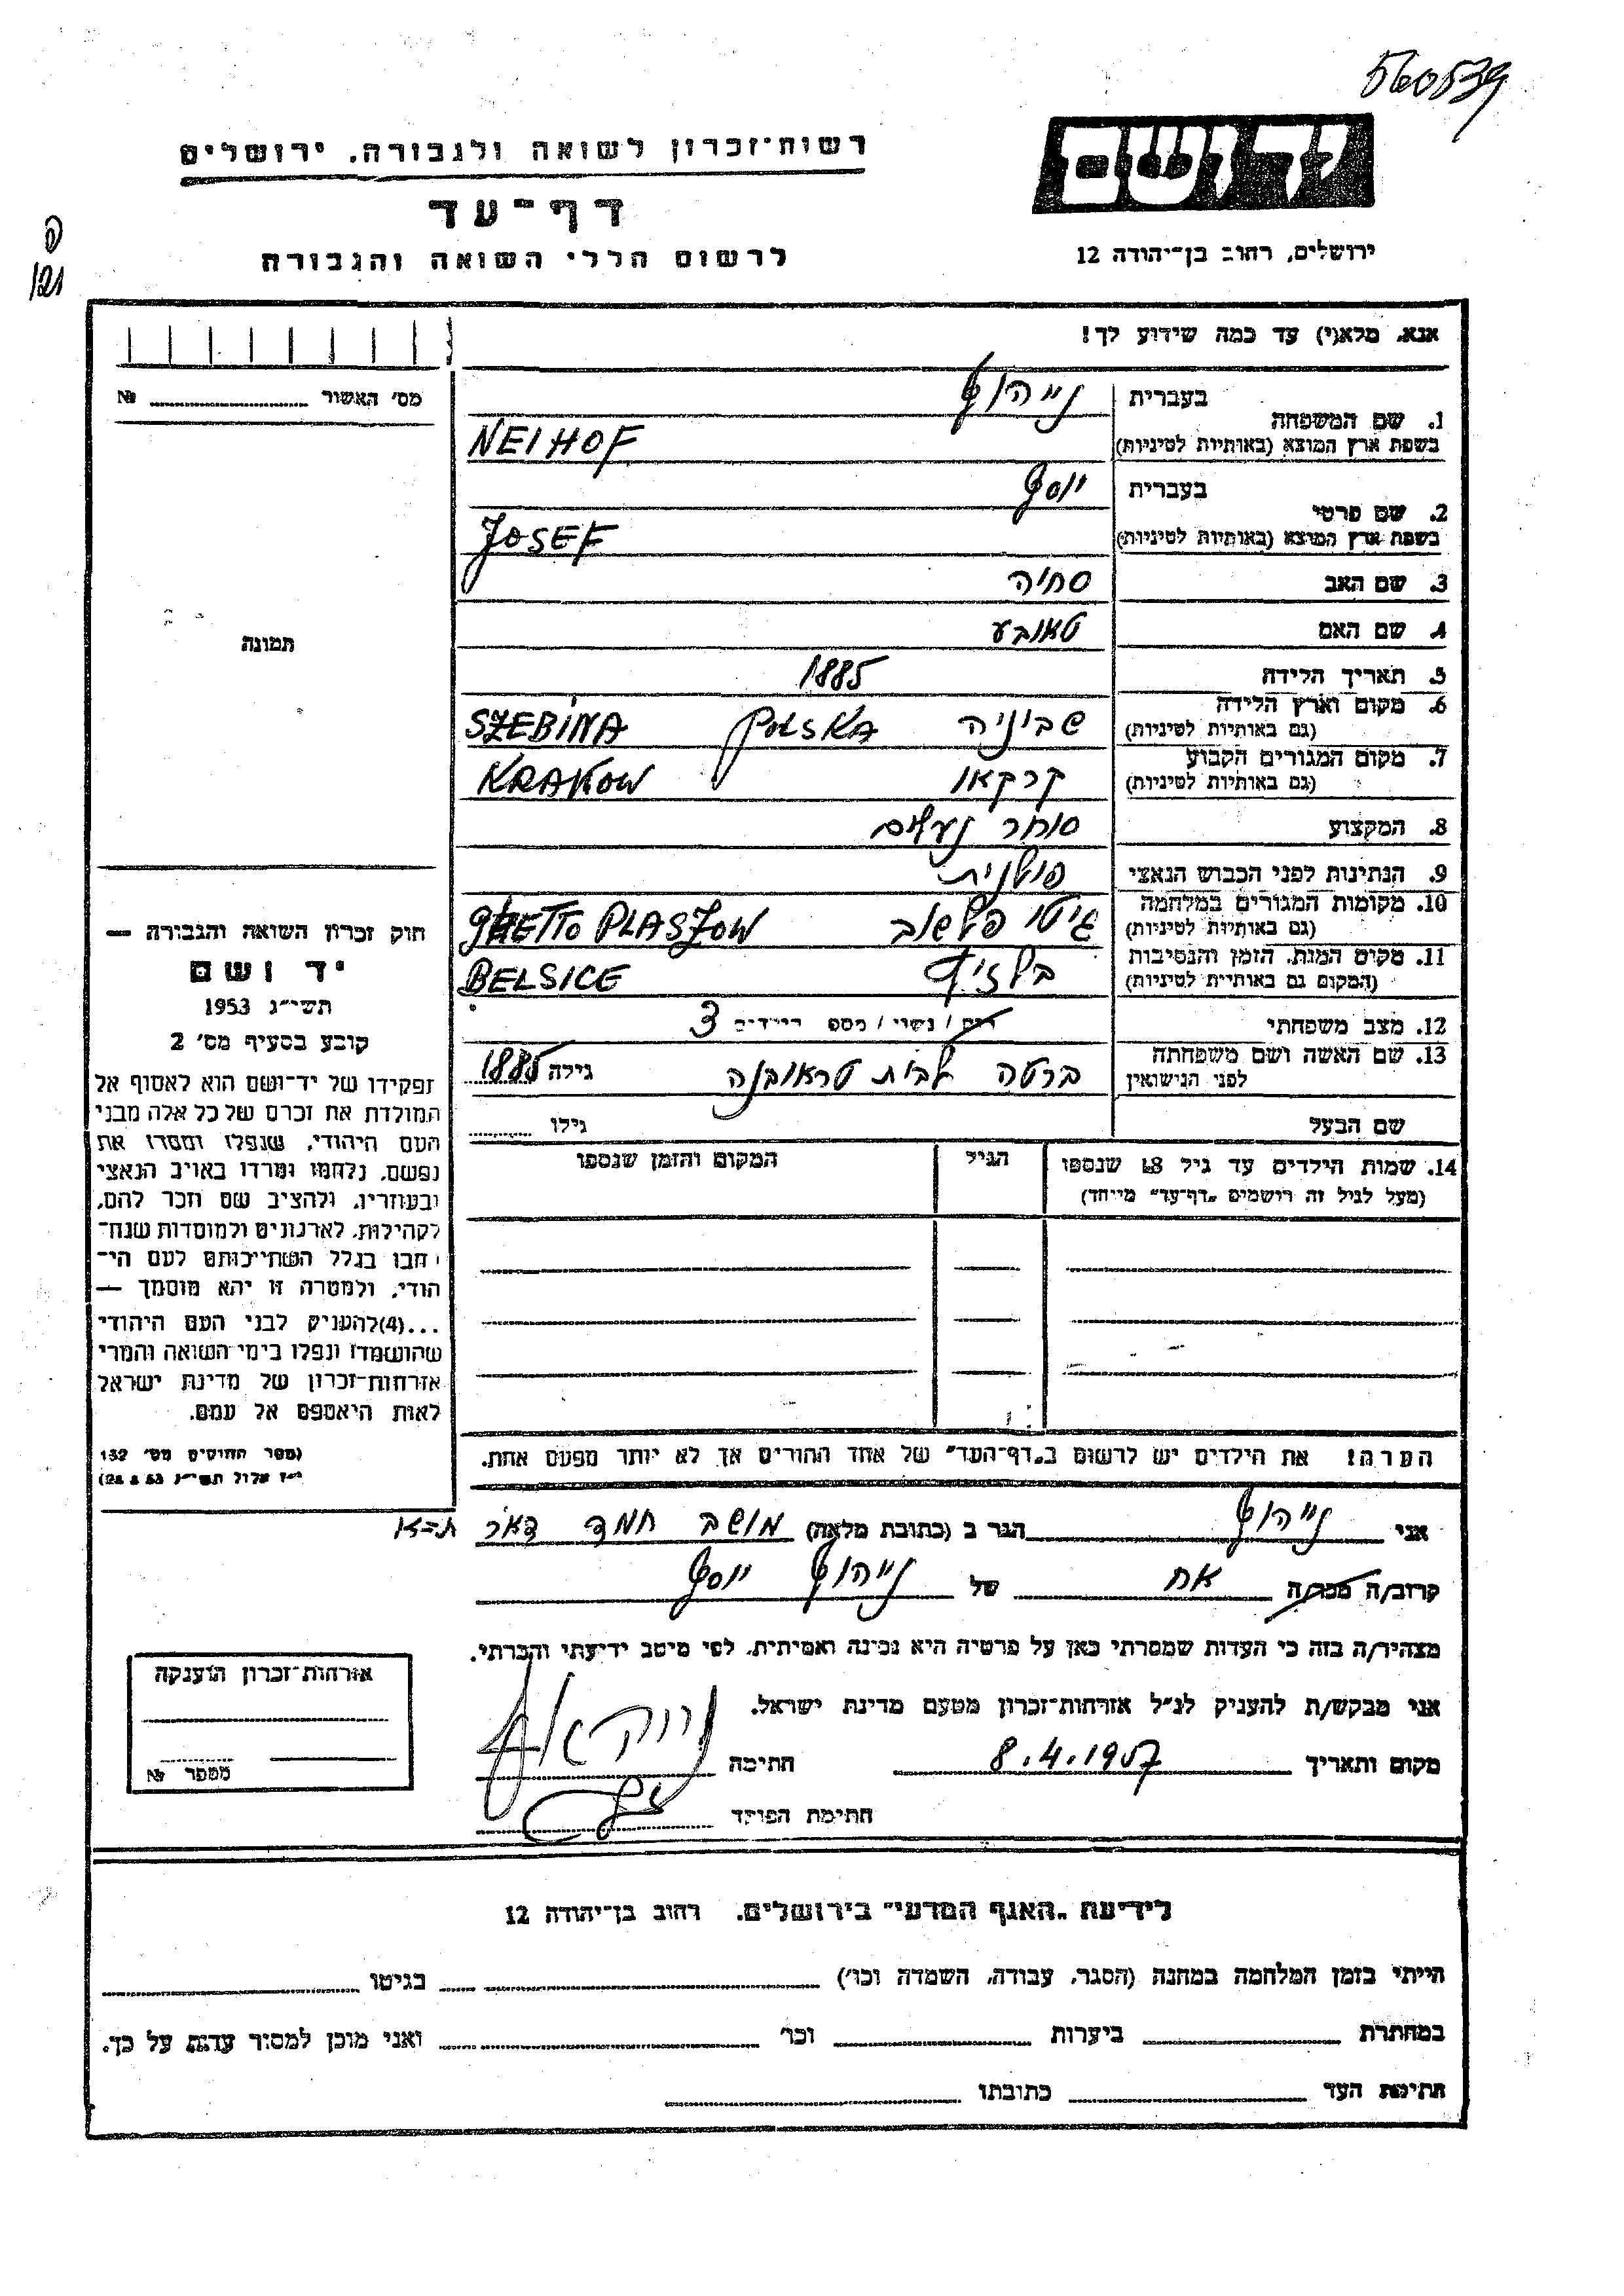 560539
יד ושם
רשות־זכרון לשואה ולגבורה, ירושלים
דף־עד
לרשום חללי השואה והגבורה
ירושלים, רחוב בן־יהודה 12
121
אנא, מלא(י) עד כמה שידוע לך!
מס׳ האשור №
1. שם המשפחה בעברית נייהוף
בשפת ארץ המוצא (באותיות לטיניות) NEIHOF
2. שם פרטי בעברית יוסף
בשפת ארץ המוצא (באותיות לטיניות) JOSEF
3. שם האב סחיה
4. שם האם טאובע
תמונה
5. תאריך הלידה 1885
6. מקום וארץ הלידה (גם באותיות לטיניות) שבוניה POLSKA SZEBINA
7. מקום המגורים הקבוע (גם באותיות לטיניות) קרקאו KRAKOW
8. המקצוע סוחר נעלים
9. הנתינות לפני הכבוש הנאצי פולנית
10. מקומות המגורים במלחמה (גם באותיות לטיניות) גיטו פלשוב GHETTO PLASZOW
11. מקום המות, הזמן והנסיבות (המקום גם באותיות לטיניות) בלזיץ BELSICE
12. מצב משפחתי רווק / נשוי / מספ הילדים 3
13. שם האשה ושם משפחתה לפני הנישואין ברטה לבית טראובנה גילה 1885
שם הבעל גילו
14. שמות הילדים עד גיל 18 שנספו הגיל המקום והזמן שנספו
(מעל לגיל זה רושמים „דף־עד״ מיוחד)
הערה! את הילדים יש לרשום ב„דף־העד״ של אחד ההורים אך לא יותר מפעם אחת.
חוק זכרון השואה והגבורה —
יד ושם
תשי״ג 1953
קובע בסעיף מס׳ 2
תפקידו של יד־ושם הוא לאסוף אל
המולדת את זכרם של כל אלה מבני
העם היהודי, שנפלו ומסרו את
נפשם, נלחמו ומרדו באויב הנאצי
ובעוזריו, ולהציב שם וזכר להם,
לקהילות, לארגונים ולמוסדות שנח־
רבו בגלל השתייכותם לעם הי־
הודי, ולמטרה זו יהא מוסמך —
...(4)להעניק לבני העם היהודי
שהושמדו ונפלו בימי השואה והמרי
אזרחות־זכרון של מדינת ישראל
לאות היאספם אל עמם.
(ספר החוקים מס׳ 132
י״ז אלול תשי״ג 28.8.53)
אני נייהוף הגר ב (כתובת מלאה) מושב חמד דאר
קרוב/ה מכר/ה אח של נייהוף יוסף
מצהיר/ה בזה כי העדות שמסרתי כאן על פרטיה היא נכונה ואמיתית, לפי מיטב ידיעתי והכרתי.
אני מבקש/ת להעניק לנ״ל אזרחות־זכרון מטעם מדינת ישראל.
מקום ותאריך 8.4.1957 חתימה
חתימת הפוקד
אזרחות־זכרון הוענקה
מספר №
לידיעת „האגף המדעי״ בירושלים, רחוב בן־יהודה 12
הייתי בזמן המלחמה במחנה (הסגר, עבודה, השמדה וכו׳) בגיטו
במחתרת ביערות וכו׳ ואני מוכן למסור עדות על כך.
חתימת העד כתובתו